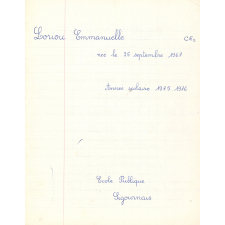 Loriou Emmanuelle CE2
née le 25 septembre 1967
Année scolaire 1975 1976
Ecole Publique